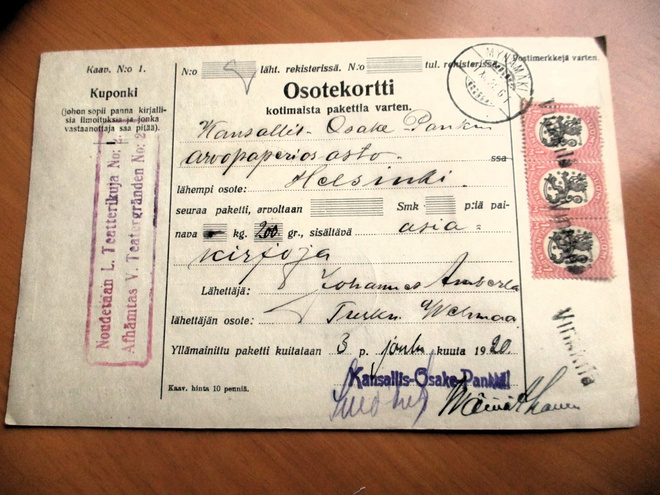 Kaav. N:o 1.
Kuponki
(johon sopii panna kirjalli-
sia ilmoituksia ja jonka
vastaanottaja saa pitää).
Noudetaan L. Teatterikuja No:
Afhämtas V. Teatergränden No: 2
N:o läht. rekisterissä. N:o tul. rekisterissä.
Postimerkkejä varten.
Osotekortti
kotimaista pakettia varten.
MYNÄMÄKI
Kansallis-Osake Pankin
arvopaperiosasto ssa
lähempi osote: Helsinki.
seuraa paketti, arvoltaan Smk p:lä pai-
nava kg. 200 gr., sisältävä asia-
kirjoja
Lähettäjä: Johannes
lähettäjän osote: Turku, Wehmaa
Yllämainittu paketti kuitataan 3 p. joulu kuuta 1920.
Kansallis-Osake-Pankki
Kaav. hinta 10 penniä.